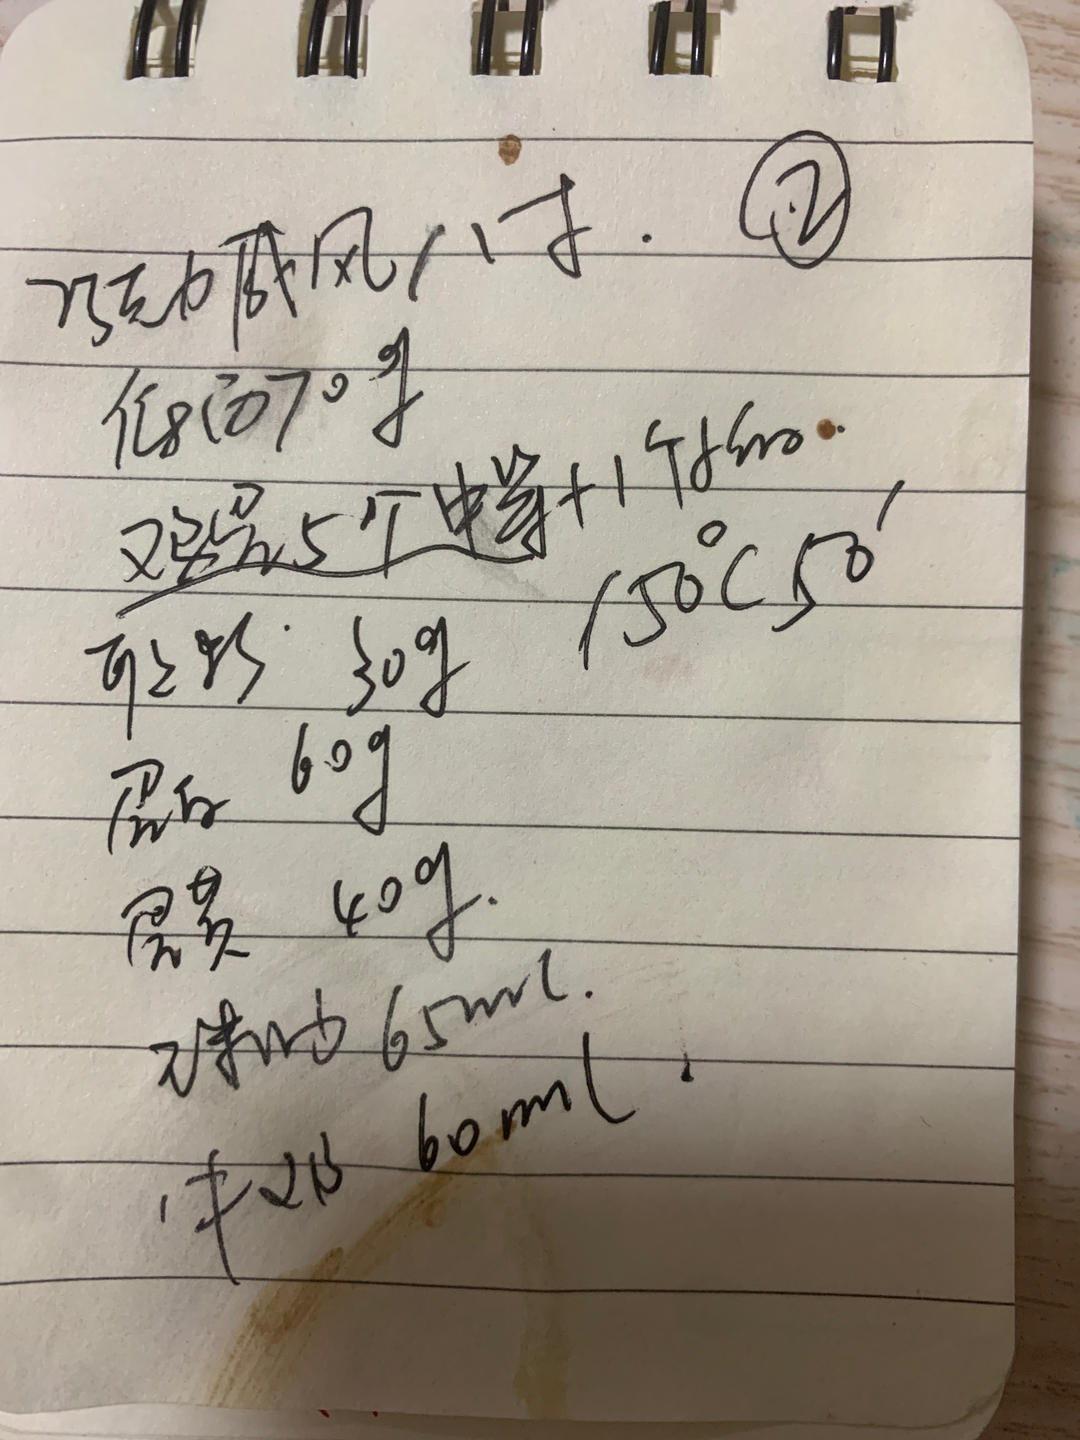 巧克力戚风八寸. ②
低粉70g
鸡蛋5个中等+1个
150℃ 50′
可可粉 30g
蛋白 60g
蛋黄 40g.
玉米油 65ml.
牛奶 60ml